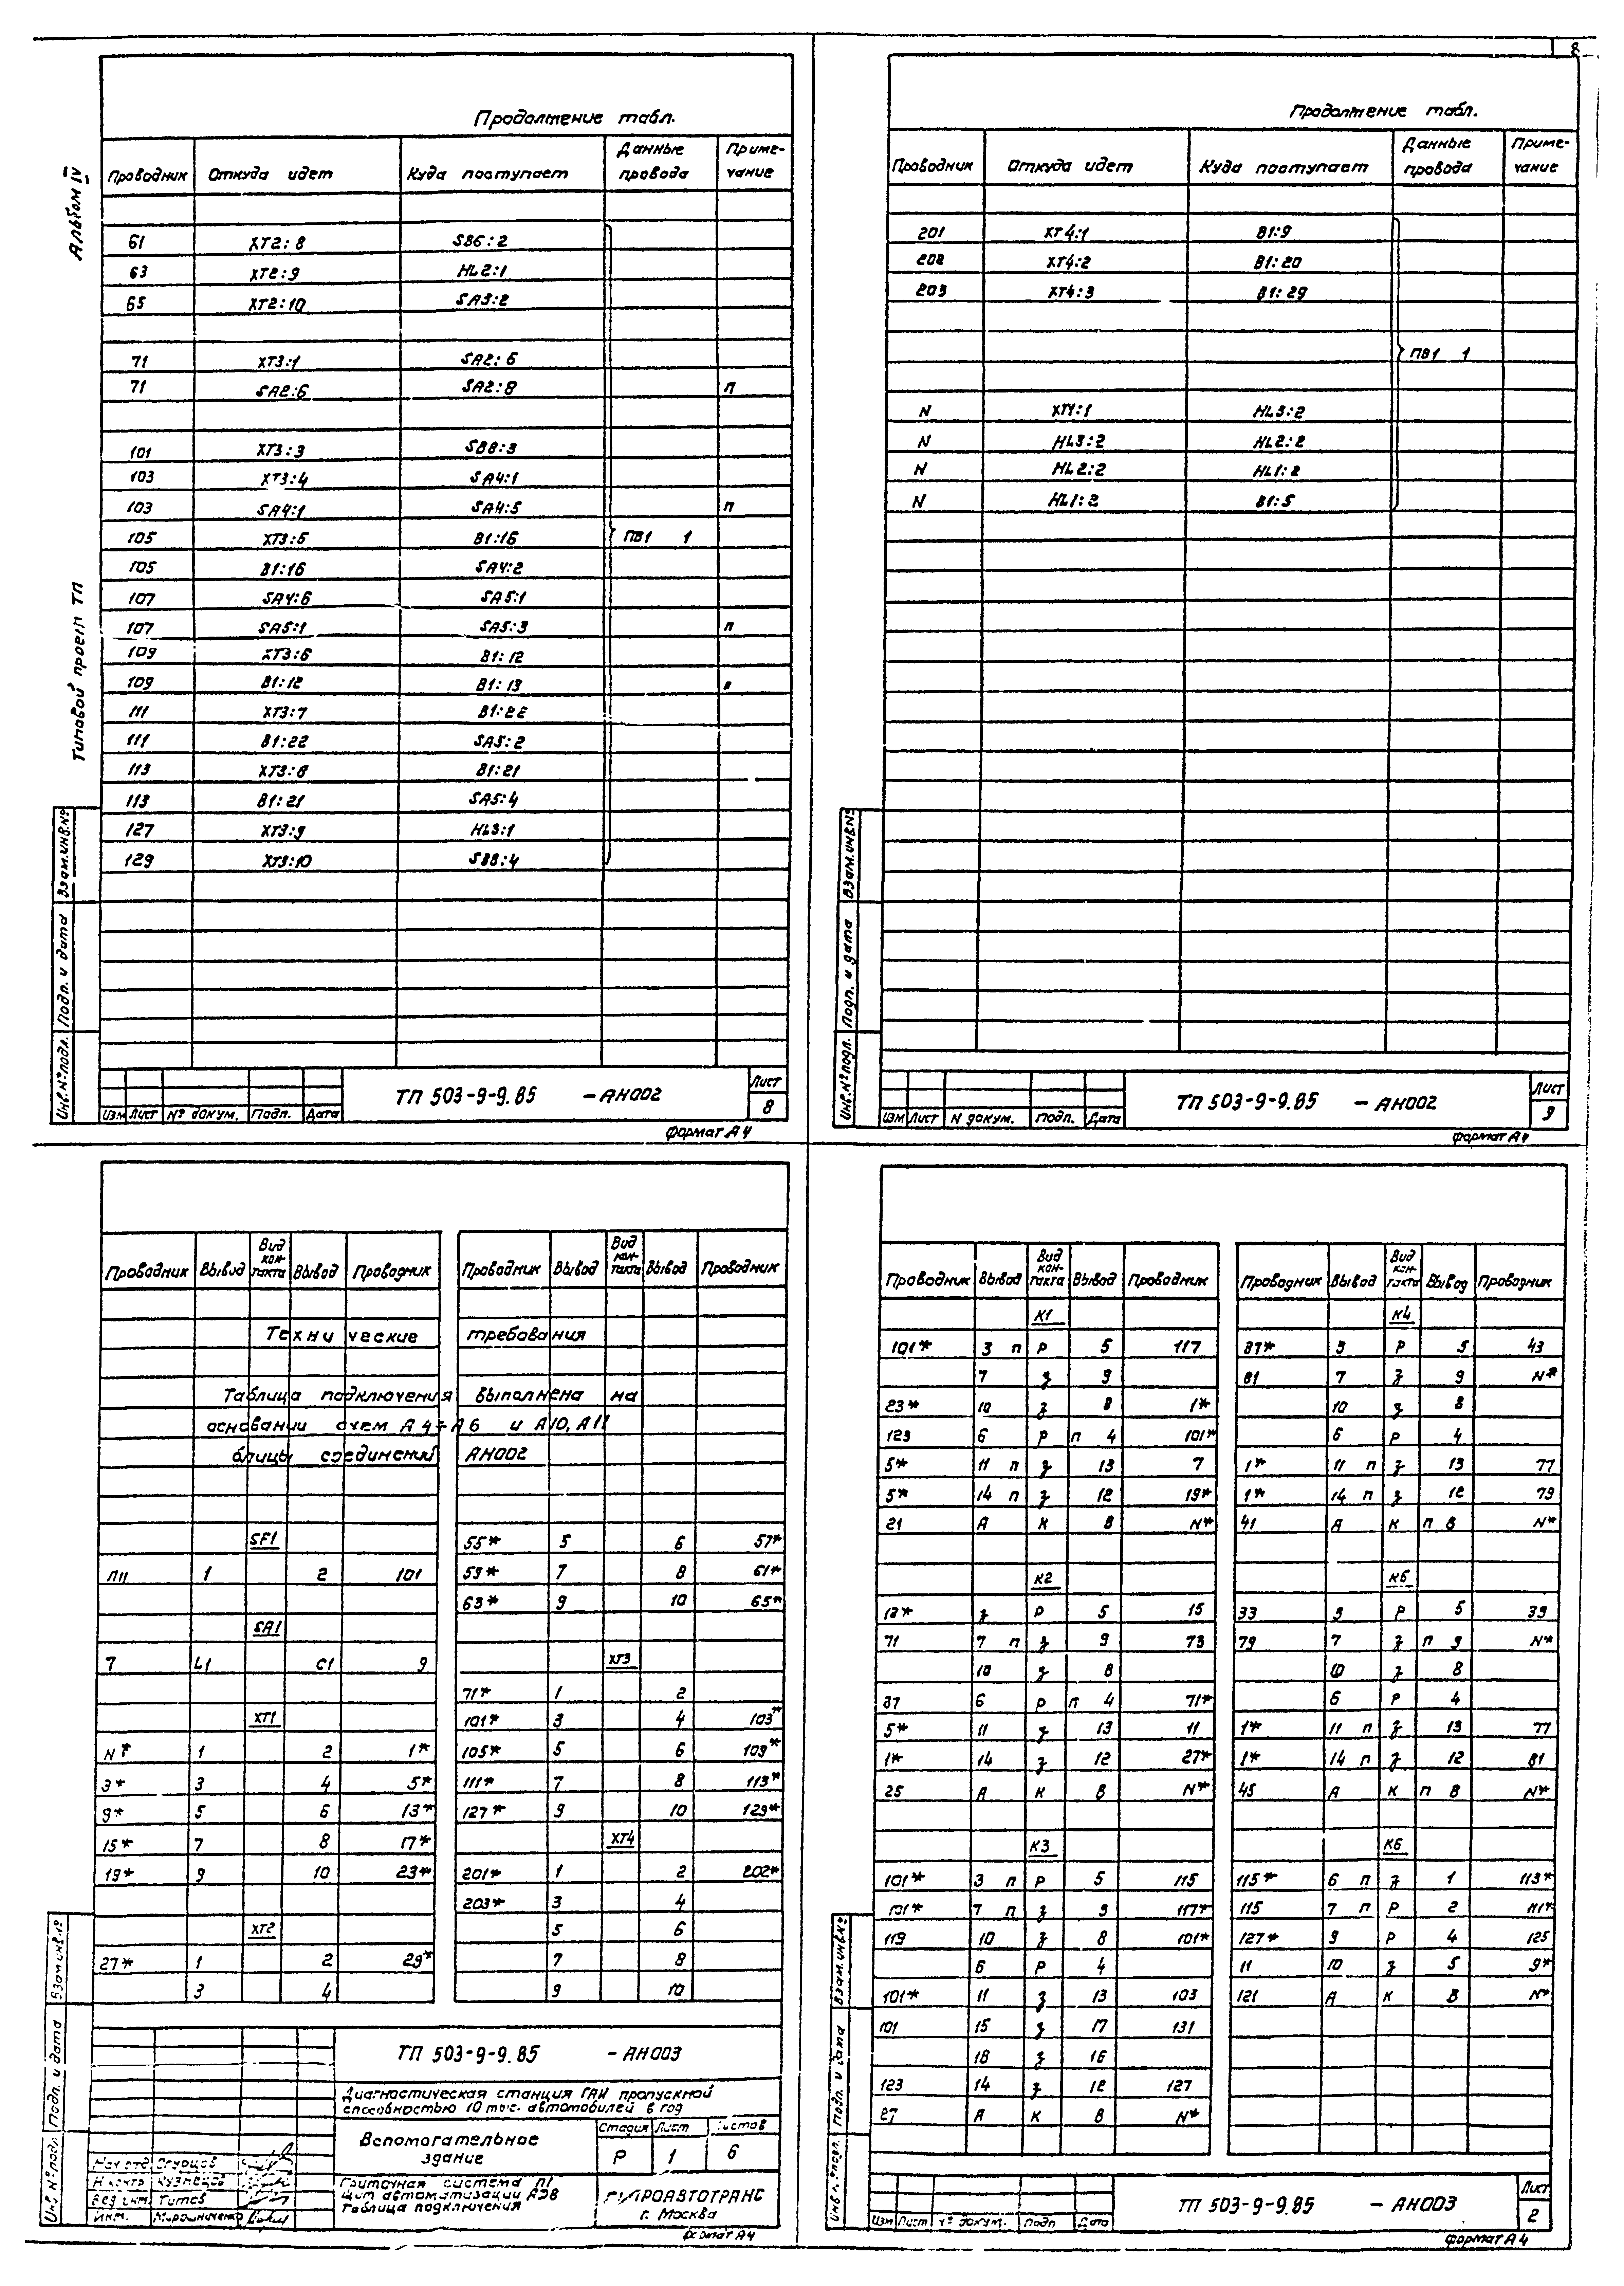 8
Альбом IV
Типовой проект ТП
Продолжение табл.
Проводник Откуда идет Куда поступает Данные провода Примечание
61 XT2:8 SB6:2
63 XT2:9 HL2:1
65 XT2:10 SA3:2
71 XT3:1 SA2:6
71 SA2:6 SA2:8 п
101 XT3:3 SB8:3
103 XT3:4 SA4:1
103 SA4:1 SA4:5 п
105 XT3:5 B1:16 ПВ1 1
105 B1:16 SA4:2
107 SA4:6 SA5:1
107 SA5:1 SA5:3 п
109 XT3:6 B1:12
109 B1:12 B1:13 п
111 XT3:7 B1:22
111 B1:22 SA5:2
113 XT3:8 B1:21
113 B1:21 SA5:4
127 XT3:9 HL3:1
129 XT3:10 SB8:4
Инв.№подл. Подп. и дата Взам.инв.№
Изм Лист № докум. Подп. Дата
ТП 503-9-9.85 -АН002
Лист
8
Формат А4
Продолжение табл.
Проводник Откуда идет Куда поступает Данные провода Примечание
201 XT4:1 B1:9
202 XT4:2 B1:20
203 XT4:3 B1:29
ПВ1 1
N XT1:1 HL3:2
N HL3:2 HL2:2
N HL2:2 HL1:2
N HL1:2 B1:5
Инв.№подл. Подп. и дата Взам.инв№
Изм Лист N докум. Подп. Дата
ТП 503-9-9.85 -АН002
Лист
9
Формат А4
Проводник Вывод Вид контакта Вывод Проводник
Проводник Вывод Вид контакта Вывод Проводник
Технические требования
Таблица подключения выполнена на
основании схем А4÷А6 и А10, А11
блицы соединений АН002
SF1
Л11 1 2 101
SA1
7 L1 C1 9
XT1
N* 1 2 1*
3* 3 4 5*
9* 5 6 13*
15* 7 8 17*
19* 9 10 23*
XT2
27* 1 2 29*
3 4
55* 5 6 57*
59* 7 8 61*
63* 9 10 65*
XT3
71* 1 2
101* 3 4 103*
105* 5 6 109*
111* 7 8 113*
127* 9 10 129*
XT4
201* 1 2 202*
203* 3 4
5 6
7 8
9 10
Инв №подл Подп. и дата Взам инв.№
ТП 503-9-9.85 -АН003
Диагностическая станция ГАИ пропускной
способностью 10 тыс. автомобилей в год
Вспомогательное
здание
Стадия Лист Листов
Р 1 6
Нач отд Огурцов
Н контр Кузнецов
Вед инж. Титов
Инж. Мирошниченко
Приточная система П1
Щит автоматизации
Таблица подключения
ГИПРОАВТОТРАНС
г. Москва
Формат А4
Проводник Вывод Вид контакта Вывод Проводник
K1
101* 3 п р 5 117
7 з 9
23* 10 з 8 1*
123 6 р п 4 101*
5* 11 п з 13 7
5* 14 п з 12 19*
21 А К В N*
K2
з р 5 15
71 7 п з 9 73
10 з 8
37 6 р п 4 71*
5* 11 з 13 11
1* 14 з 12 27*
25 А К В N*
K3
101* 3 п р 5 115
101* 7 п з 9 117*
119 10 з 8 101*
6 р 4
101* 11 з 13 103
101 15 з 17 131
18 з 16
123 14 з 12 127
27 А К В N*
Проводник Вывод Вид контакта Вывод Проводник
K4
37* 3 р 5 43
81 7 з 9 N*
10 з 8
6 р 4
1* 11 п з 13 77
1* 14 п з 12 79
41 А К п В N*
K5
33 3 р 5 39
79 7 з п 9 N*
10 з 8
6 р 4
1* 11 п з 13 77
1* 14 п з 12 81
45 А К п В N*
K6
115* 6 п з 1 113*
115 7 п р 2 111*
127* 9 р 4 125
11 10 з 5 9*
121 А К В N*
Инв.№подл. Подп. и дата Взам.инв.№
Изм Лист № докум. Подп Дата
ТП 503-9-9.85 -АН003
Лист
2
Формат А4